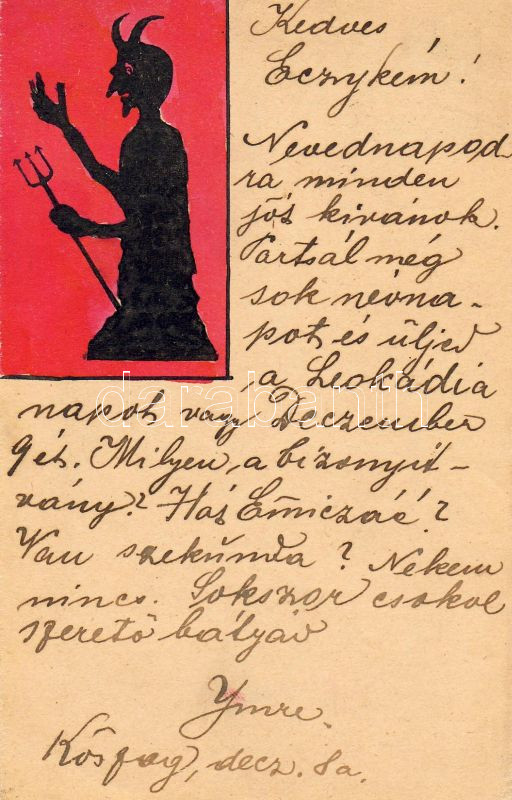 Kedves
Eczykém!
Nevednapod-
ra minden
jót kivánok.
Tartsál még
sok névna-
pot és üljed
a Leokádia
napot vagy Deczember
9ét. Milyen a bizonyít-
vány? Hát Emiczáé?
Van szekunda? Nekem
nincs. Sokszor csokol
szerető bátyád
Ymre.
decz. 8a.
darabanth